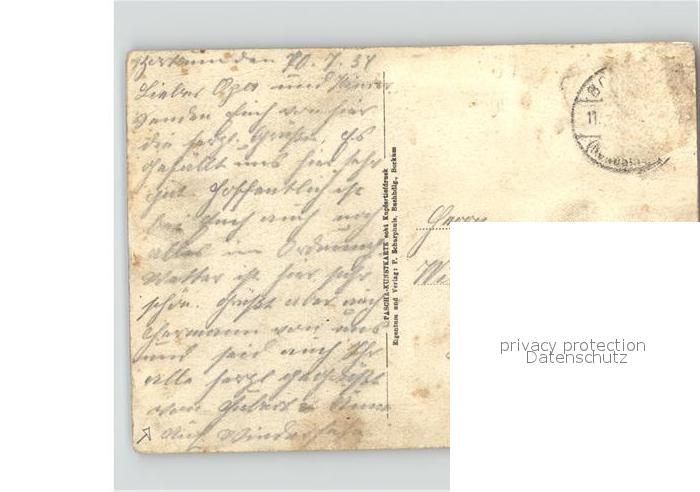 Borkum den 10. 7. 34
Lieber Opa und
senden Euch von hier
die herzl. Grüße. Es
gefällt uns hier sehr
gut. Hoffentlich ist
bei Euch auch noch
alles in Ordnung
Wetter ist hier sehr
schön. Grüßt aber auch
Hermann von uns
und seid auch Ihr
alle herzl. gegrüßt
von
Auf Wiedersehen
PASCHA-KUNSTKARTE echt Kupfertiefdruck
Eigentum und Verlag: P. Scharphuis, Buchhdlg., Borkum
Herrn
privacy protection
Datenschutz